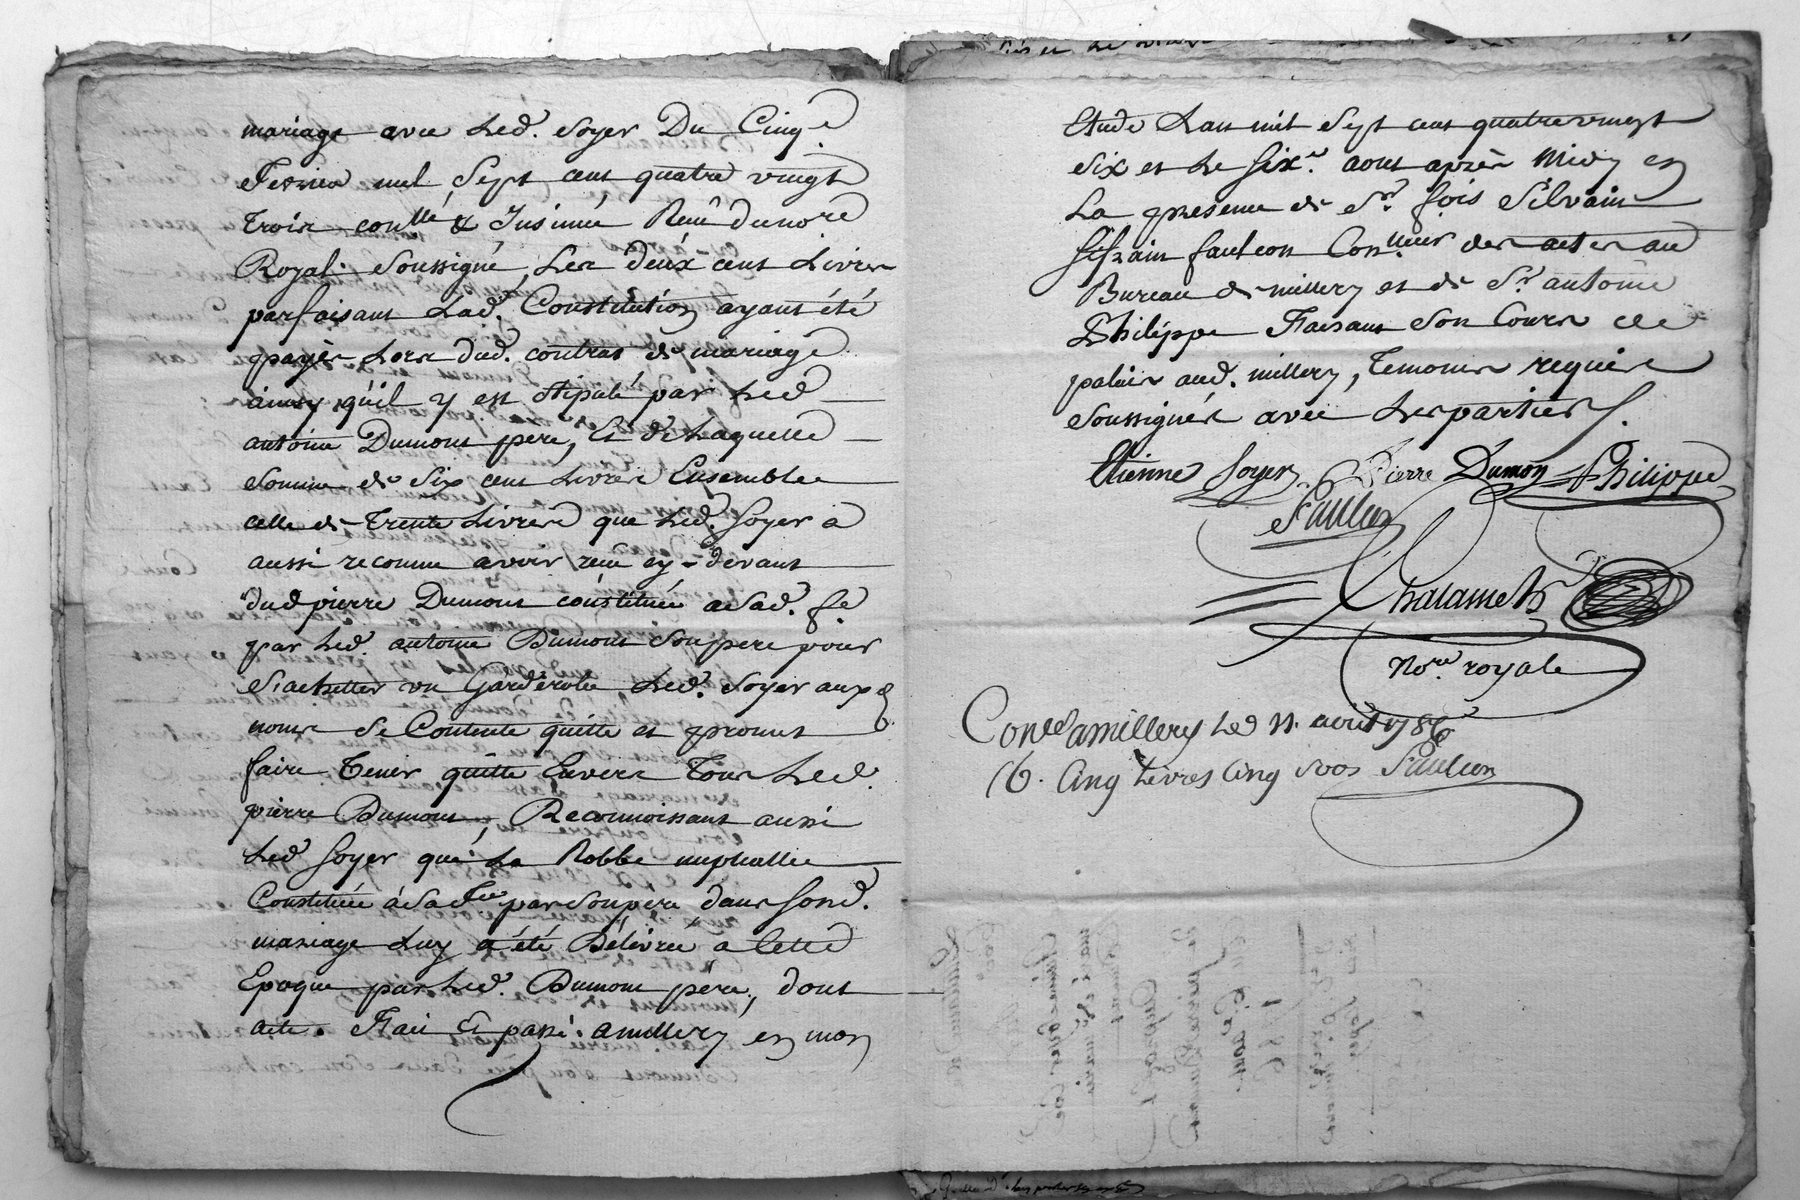 mariage avec Led. Soyer Du Cinq.e
Fevrier mil Sept cent quatre vingt
trois con.llé & Insinué Reçu dunore
Royal. Soussigné, Les deux cent Livres
parfaisant Lad. Constitution ayant été
payés Lors dud. contrat de mariage
ainsy qu'il y est stipulé par Led
antoine Dumont pere, Et de Laquelle
Somme de Six cent Livres Ensemble
celle de Trente Livres que Led. Soyer a
aussi reconnu avoir reçu cy-devant
dud pierre Dumont constituée a Sad. fe.
par Led. antoine Dumont Son pere pour
S'achetter un Garderobe Led. Soyer aux
noms Se Contente quitte et promet
faire Tenir quitte Envers Tous Led.
pierre Dumont, Reconnoissant aussi
Led Soyer que La Robbe nuptialle
Constituée à Sad fe par Son pere dans Sond.
mariage Luy a été Délivrée a Cette
Epoque par Led. Dumont pére, dont
acte. Fait Et passé. a millery en mon
Etude Lan mil Sept cent quatre vingt
six et Le six.e aout après Midy en
La presence de Sr. fois Silvain
faulcon Con.lleur des actes au
Bureau de millery et de Sr antoine
Philippe Faisant Son Cours de
palais aud. millery, Temoins requis
Soussignés avec Les parties.
Etienne Soyer Pierre Dumon Philippe
Faulcon
Chalamel
No.re royale
Con.lé a millery Le 11. aout 1786
Cinq Livres Cinq Sous Faulcon